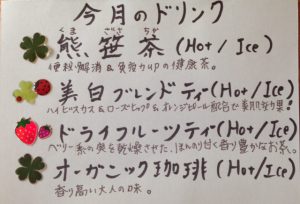 今月のドリンク
くま ざさ ちゃ
熊笹茶(Hot/Ice)
便秘解消&免疫力upの健康茶。
美白ブレンドティー(Hot/Ice)
ハイビスカス&ローズヒップ&オレンジピール配合で美肌効果!
ドライフルーツティ(Hot/Ice)
ベリー系の実を乾燥させた、ほんのり甘く香り豊かなお茶。
オーガニック珈琲(Hot/Ice)
香り高い大人の味。